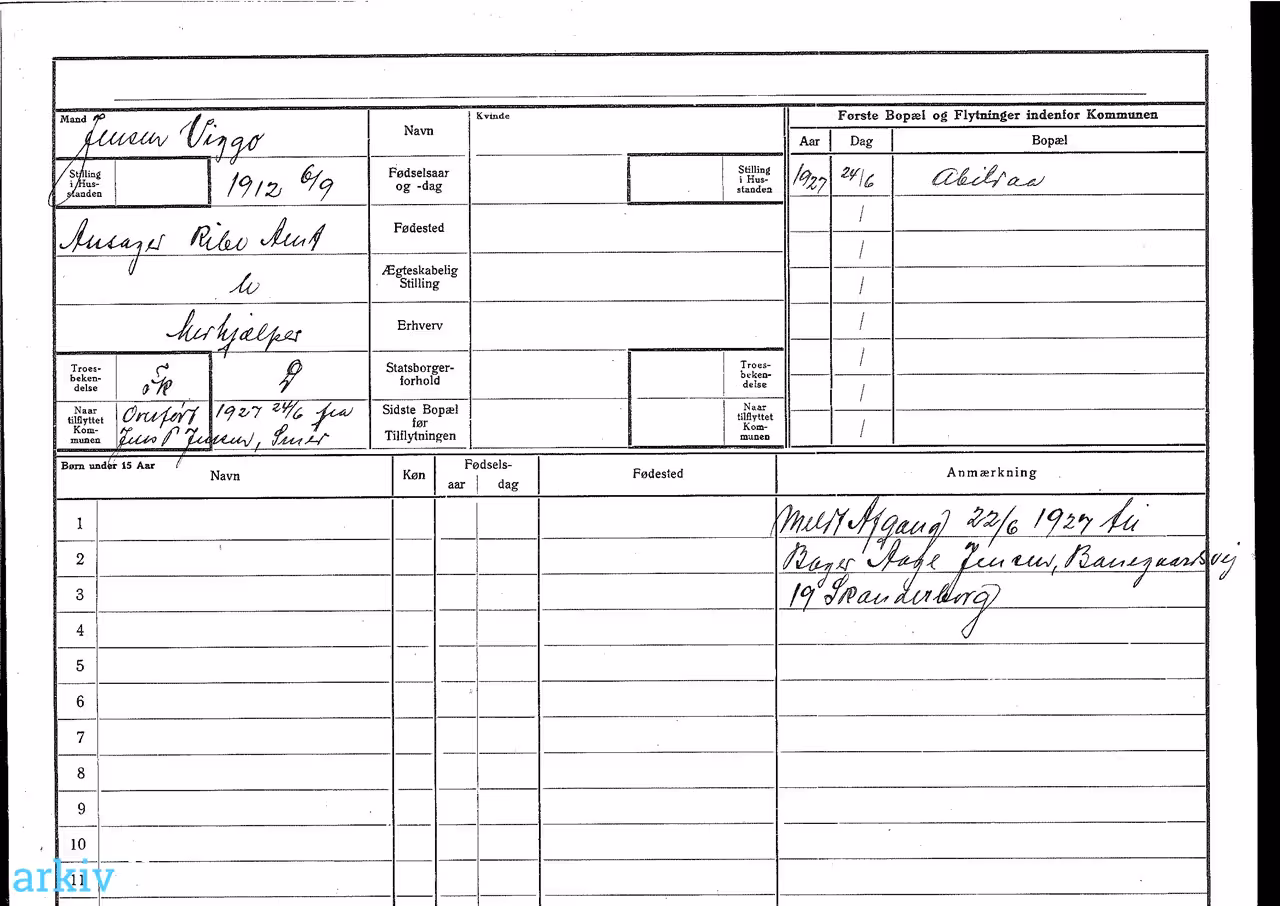 Mand
Jensen Viggo
Navn
Kvinde
Første Bopæl og Flytninger indenfor Kommunen
Aar
Dag
Bopæl
Stilling
i Hus-
standen
1912 6/9
Fødselsaar
og -dag
Stilling
i Hus-
standen
1927 24/6
Ansager Ribe Amt
Fødested
/
/
U
Ægteskabelig
Stilling
/
Medhjælper
Erhverv
/
Troes-
beken-
delse
Fk
D
Statsborger-
forhold
Troes-
beken-
delse
/
/
Naar
tilflyttet
Kom-
munen
Overført 1927 24/6 fra
Jens P Jensen,
Sidste Bopæl
før
Tilflytningen
Naar
tilflyttet
Kom-
munen
/
Børn under 15 Aar
Navn
Køn
Fødsels-
aar
dag
Fødested
Anmærkning
1
Meldt Afgang 22/6 1927 til
2
Bager Aage Jensen, Banegaardsvej
3
19 Skanderborg
4
5
6
7
8
9
10
11
arkiv